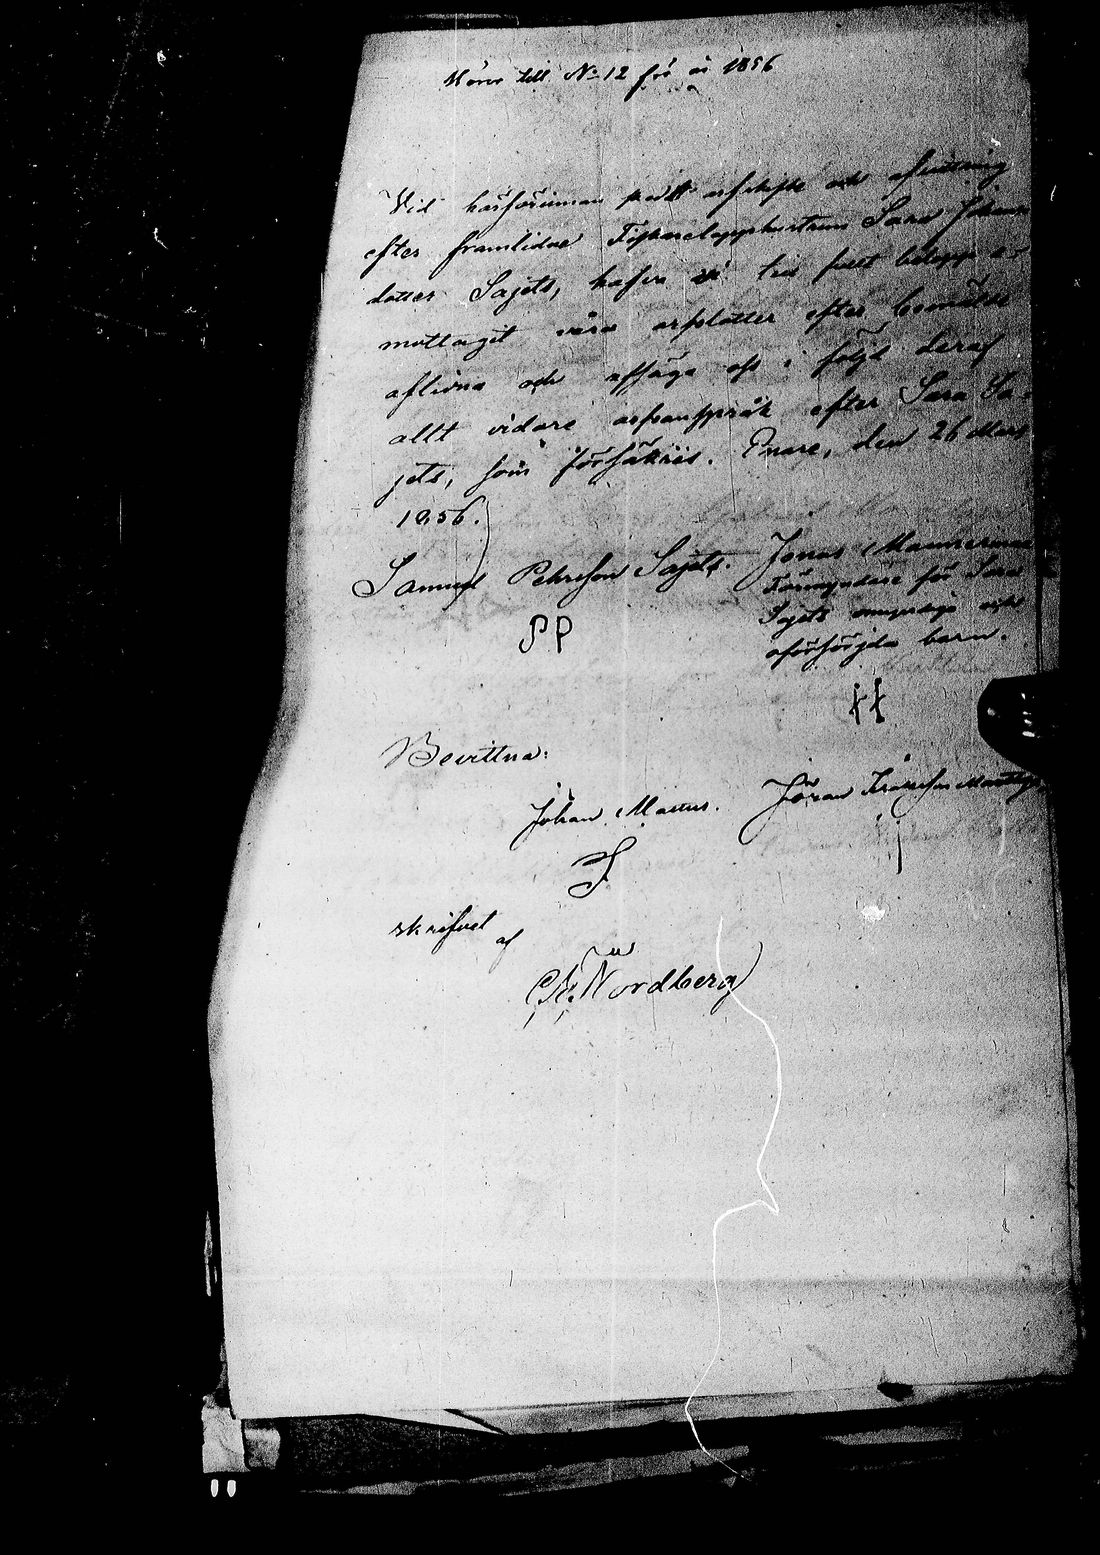 Hörer till No 12 för år 1856
Vid härförinnan skedt arfskifte och afvittring
efter framlidne Fiskarelapphustrun Sara Johans
dotter Sajets, hafva vi till fullt belopp e=
mottagit våra arfslotter efter bemälte
aflidna och afsäga oss i följd deraf
allt vidare arfsanspråk efter Sara Sa=
jets, som försäkras. Enare, den 26 Mars
1856.
Samuel Pehrsson Sajets. Jonas Mannerma
Förmyndare för Sara
Sajets omyndige och
oförsörjda barn.
SP
Bevittna:
Johan Mattus. Jöran
skrifvet af
Nordberg